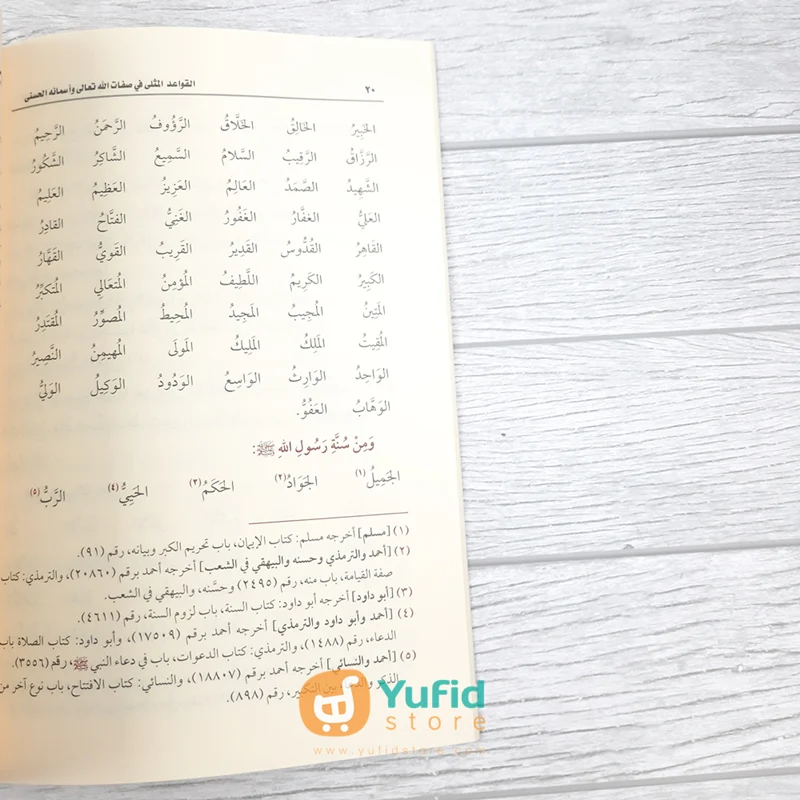 ٢٠ القواعد المثلى في صفات الله تعالى وأسمائه الحسنى
الخَبِيرُ الخَالِقُ الخَلَّاقُ الرَّؤُوفُ الرَّحمَنُ الرَّحِيمُ
الرَّزَّاقُ الرَّقِيبُ السَّلامُ السَّمِيعُ الشَّاكِرُ الشَّكُورُ
الشَّهِيدُ الصَّمَدُ العَالِمُ العَزِيزُ العَظِيمُ العَلِيمُ
العَلِيُّ الغفَّارُ الغَفُورُ الغَنِيُّ الفتَّاحُ القادِرُ
القَاهِرُ القُدُّوسُ القَدِيرُ القَرِيبُ القَوِيُّ القَهَّارُ
الكَبِيرُ الكَرِيمُ اللَّطِيفُ المُؤْمِنُ المُتَعَالِي المُتكَبِّرُ
المَتِينُ المُجِيبُ المَجِيدُ المُحِيطُ المُصوِّرُ المُقتَدِرُ
المُقِيتُ المَلِكُ المَلِيكُ المَولَى المُهيمِنُ النَّصِيرُ
الوَاحِدُ الوَارِثُ الوَاسِعُ الوَدُودُ الوَكِيلُ الوَلِيُّ
الوَهَّابُ العَفُوُّ.
وَمِنْ سُنَّةِ رَسُولِ اللهِ ﷺ:
الجَمِيلُ(١) الجَوَادُ(٢) الحَكَمُ(٣) الحَيِيُّ(٤) الرَّبُّ(٥)
(١) [مسلم] أخرجه مسلم: كتاب الإيمان، باب تحريم الكبر وبيانه، رقم (٩١).
(٢) [أحمد والترمذي وحسنه والبيهقي في الشعب] أخرجه أحمد برقم (٢٠٨٦٠)، والترمذي: كتاب
صفة القيامة، باب منه، رقم (٢٤٩٥) وحسَّنه، والبيهقي في الشعب.
(٣) [أبو داود] أخرجه أبو داود: كتاب السنة، باب لزوم السنة، رقم (٤٦١١).
(٤) [أحمد وأبو داود والترمذي] أخرجه أحمد برقم (١٧٥٠٩)، وأبو داود: كتاب الصلاة باب
الدعاء، رقم (١٤٨٨)، والترمذي: كتاب الدعوات، باب في دعاء النبي ﷺ، رقم (٣٥٥٦).
(٥) [أحمد والنسائي] أخرجه أحمد برقم (١٨٨٠٧)، والنسائي: كتاب الافتتاح، باب نوع آخر من
الذكر بين التكبير، رقم (٨٩٨).
Yufid
store
www.yufidstore.com